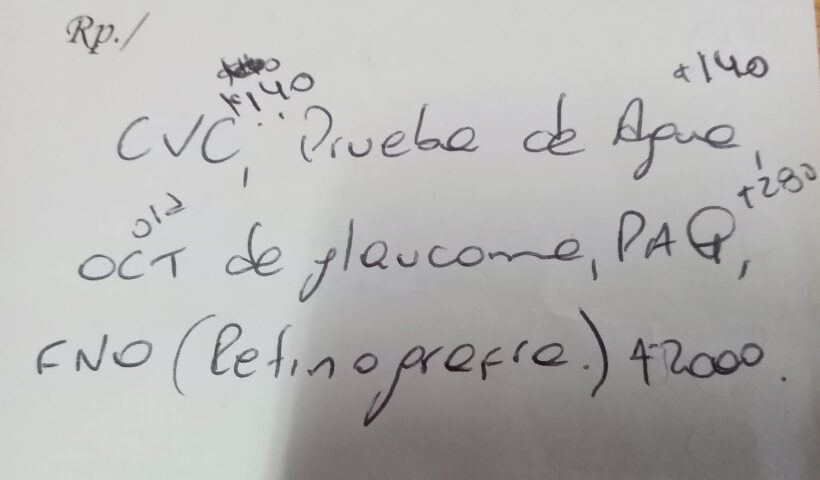 Rp./
+140 +140
CVC, Prueba de Agua,
+280
OCT de glaucoma, PAQ,
FNO (Retinografia.) +2000.